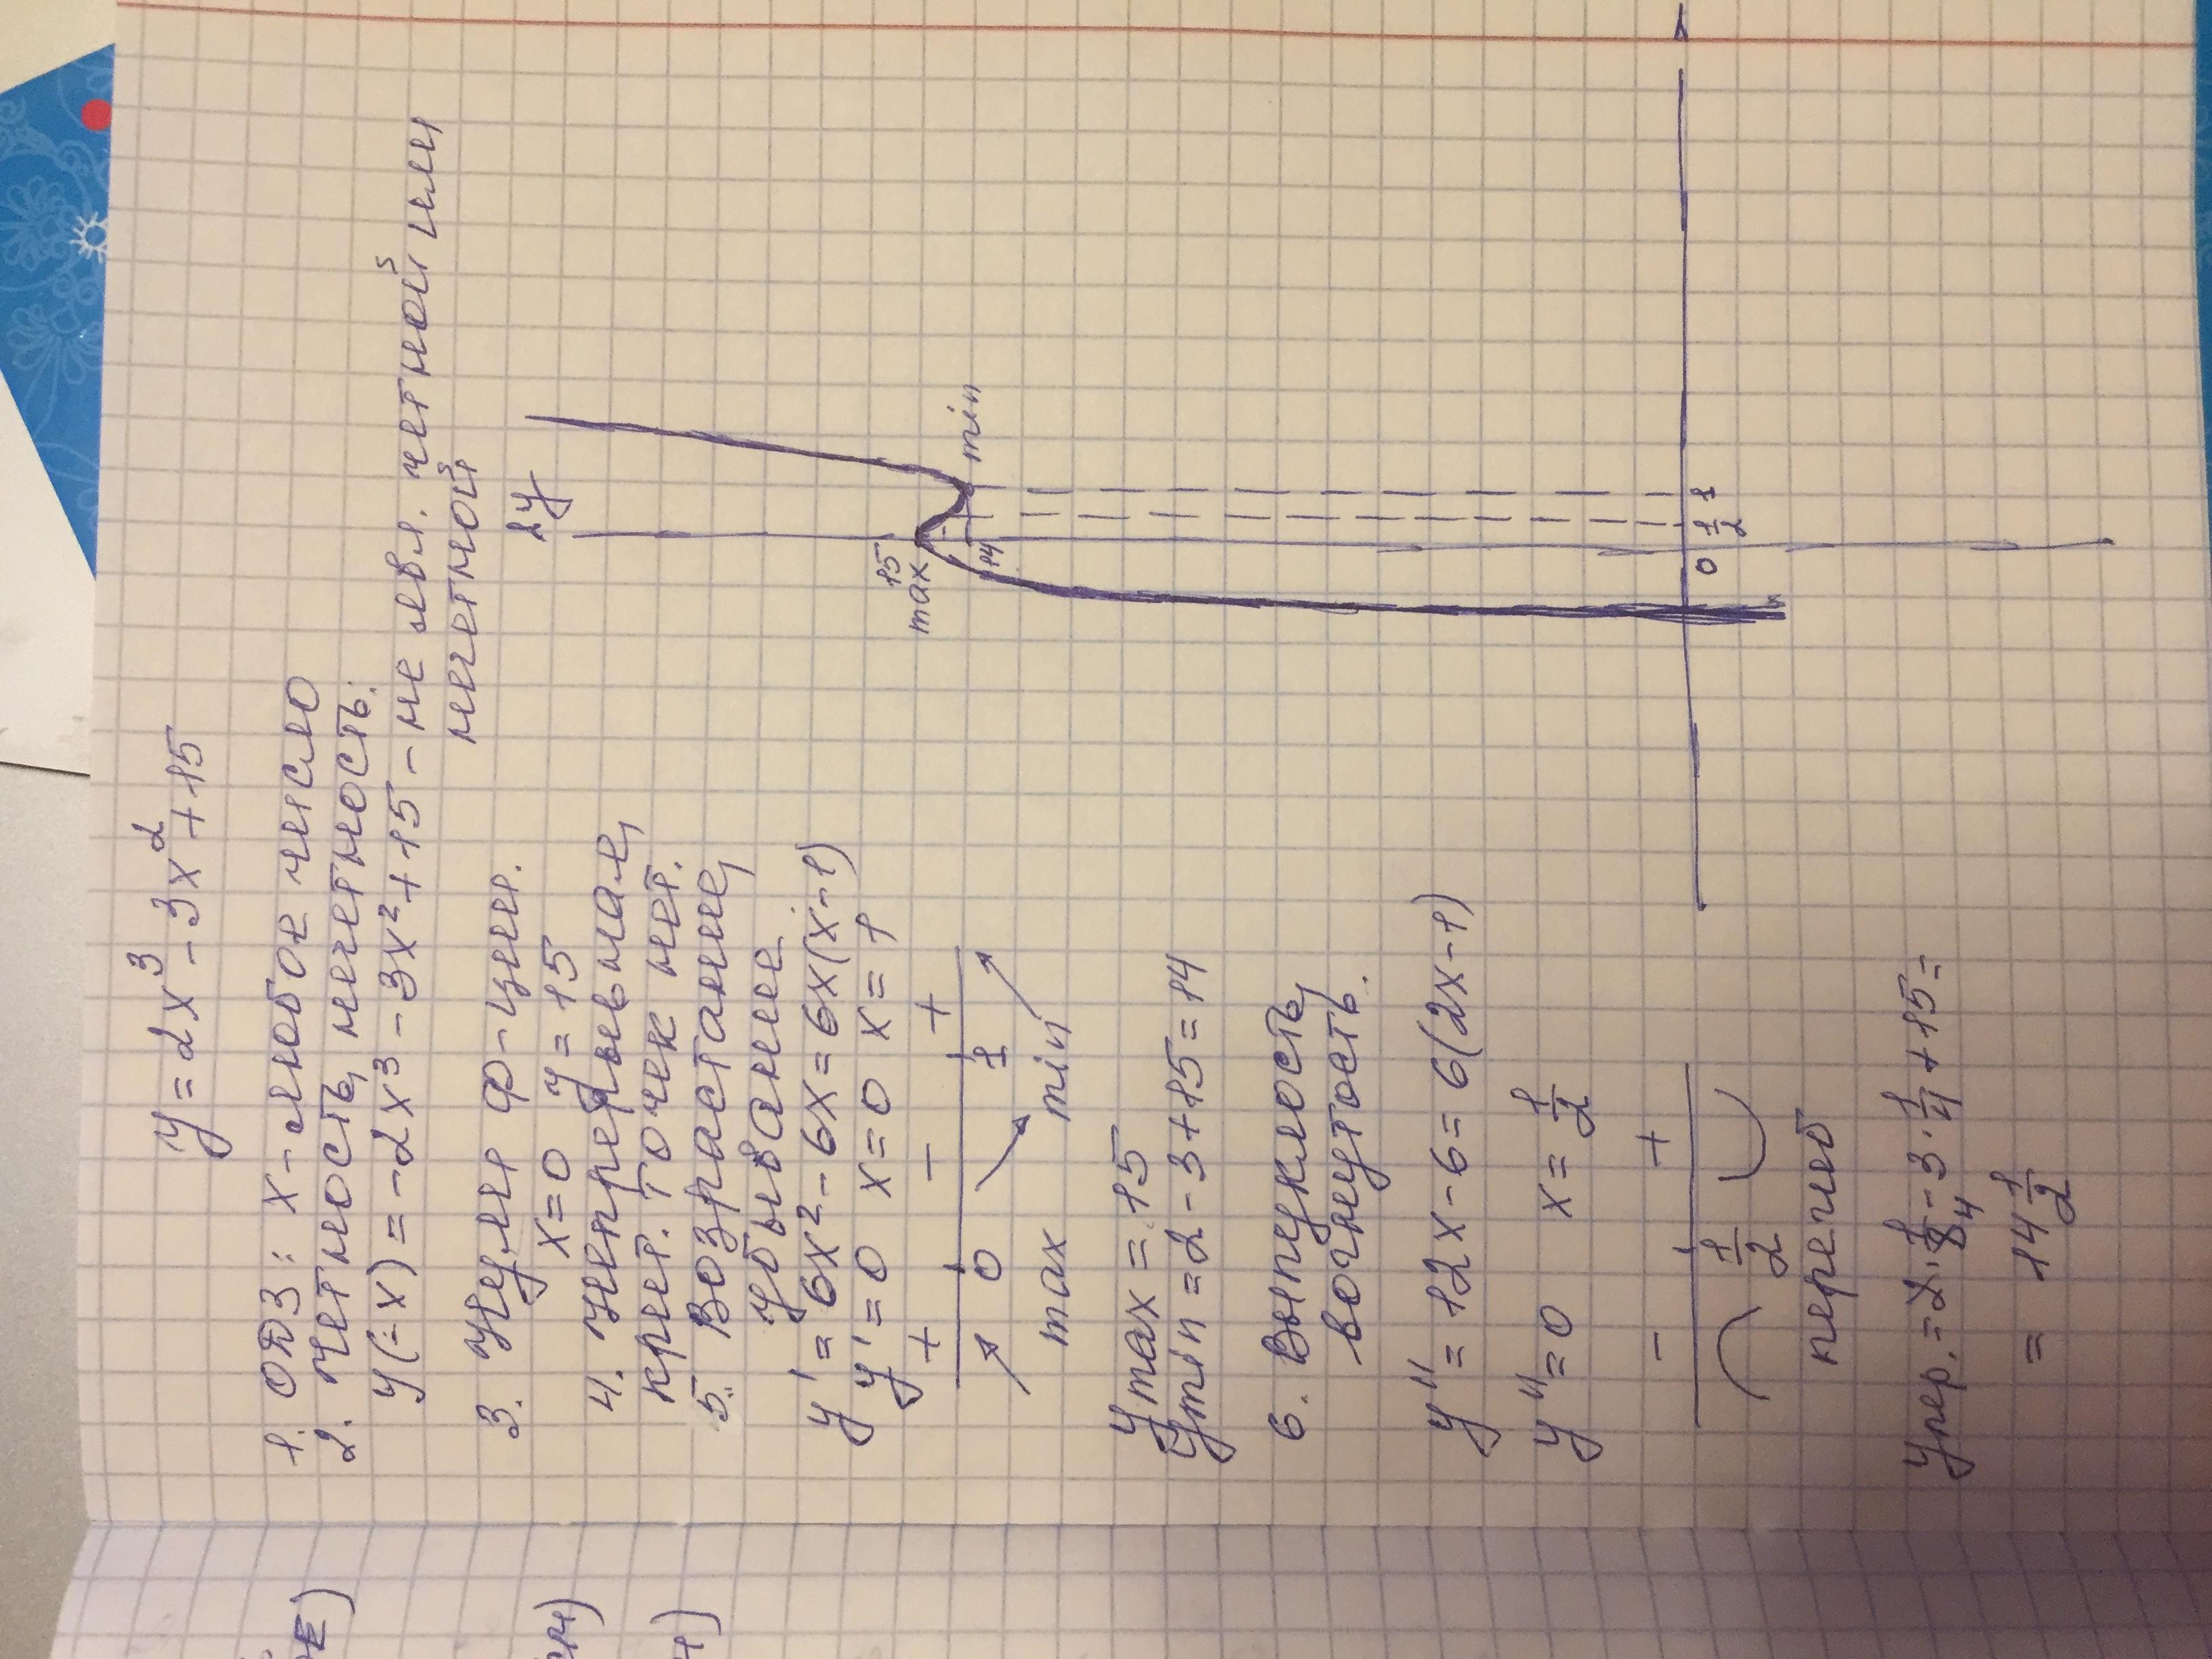 y = 2x³ - 3x² + 15
1. ОДЗ: x - любое число
2. Четность, нечетность:
y(-x) = -2x³ - 3x² + 15 - не явл. четной или
нечетной
3. Нули ф-ции.
x = 0 y = 15
4. Непрерывная,
крит. точек нет.
5. Возрастание,
убывание
y' = 6x² - 6x = 6x(x-1)
y' = 0 x = 0 x = 1
+ - +
0 1
max min
y max = 15
y min = 2 - 3 + 15 = 14
6. Выпуклость,
вогнутость.
y'' = 12x - 6 = 6(2x-1)
y'' = 0 x = 1/2
- +
1/2
перегиб
y пер. = 2·1/8 - 3·1/4 + 15 =
4
= 14 1/2
y
15
max
14
min
0 1/2 1